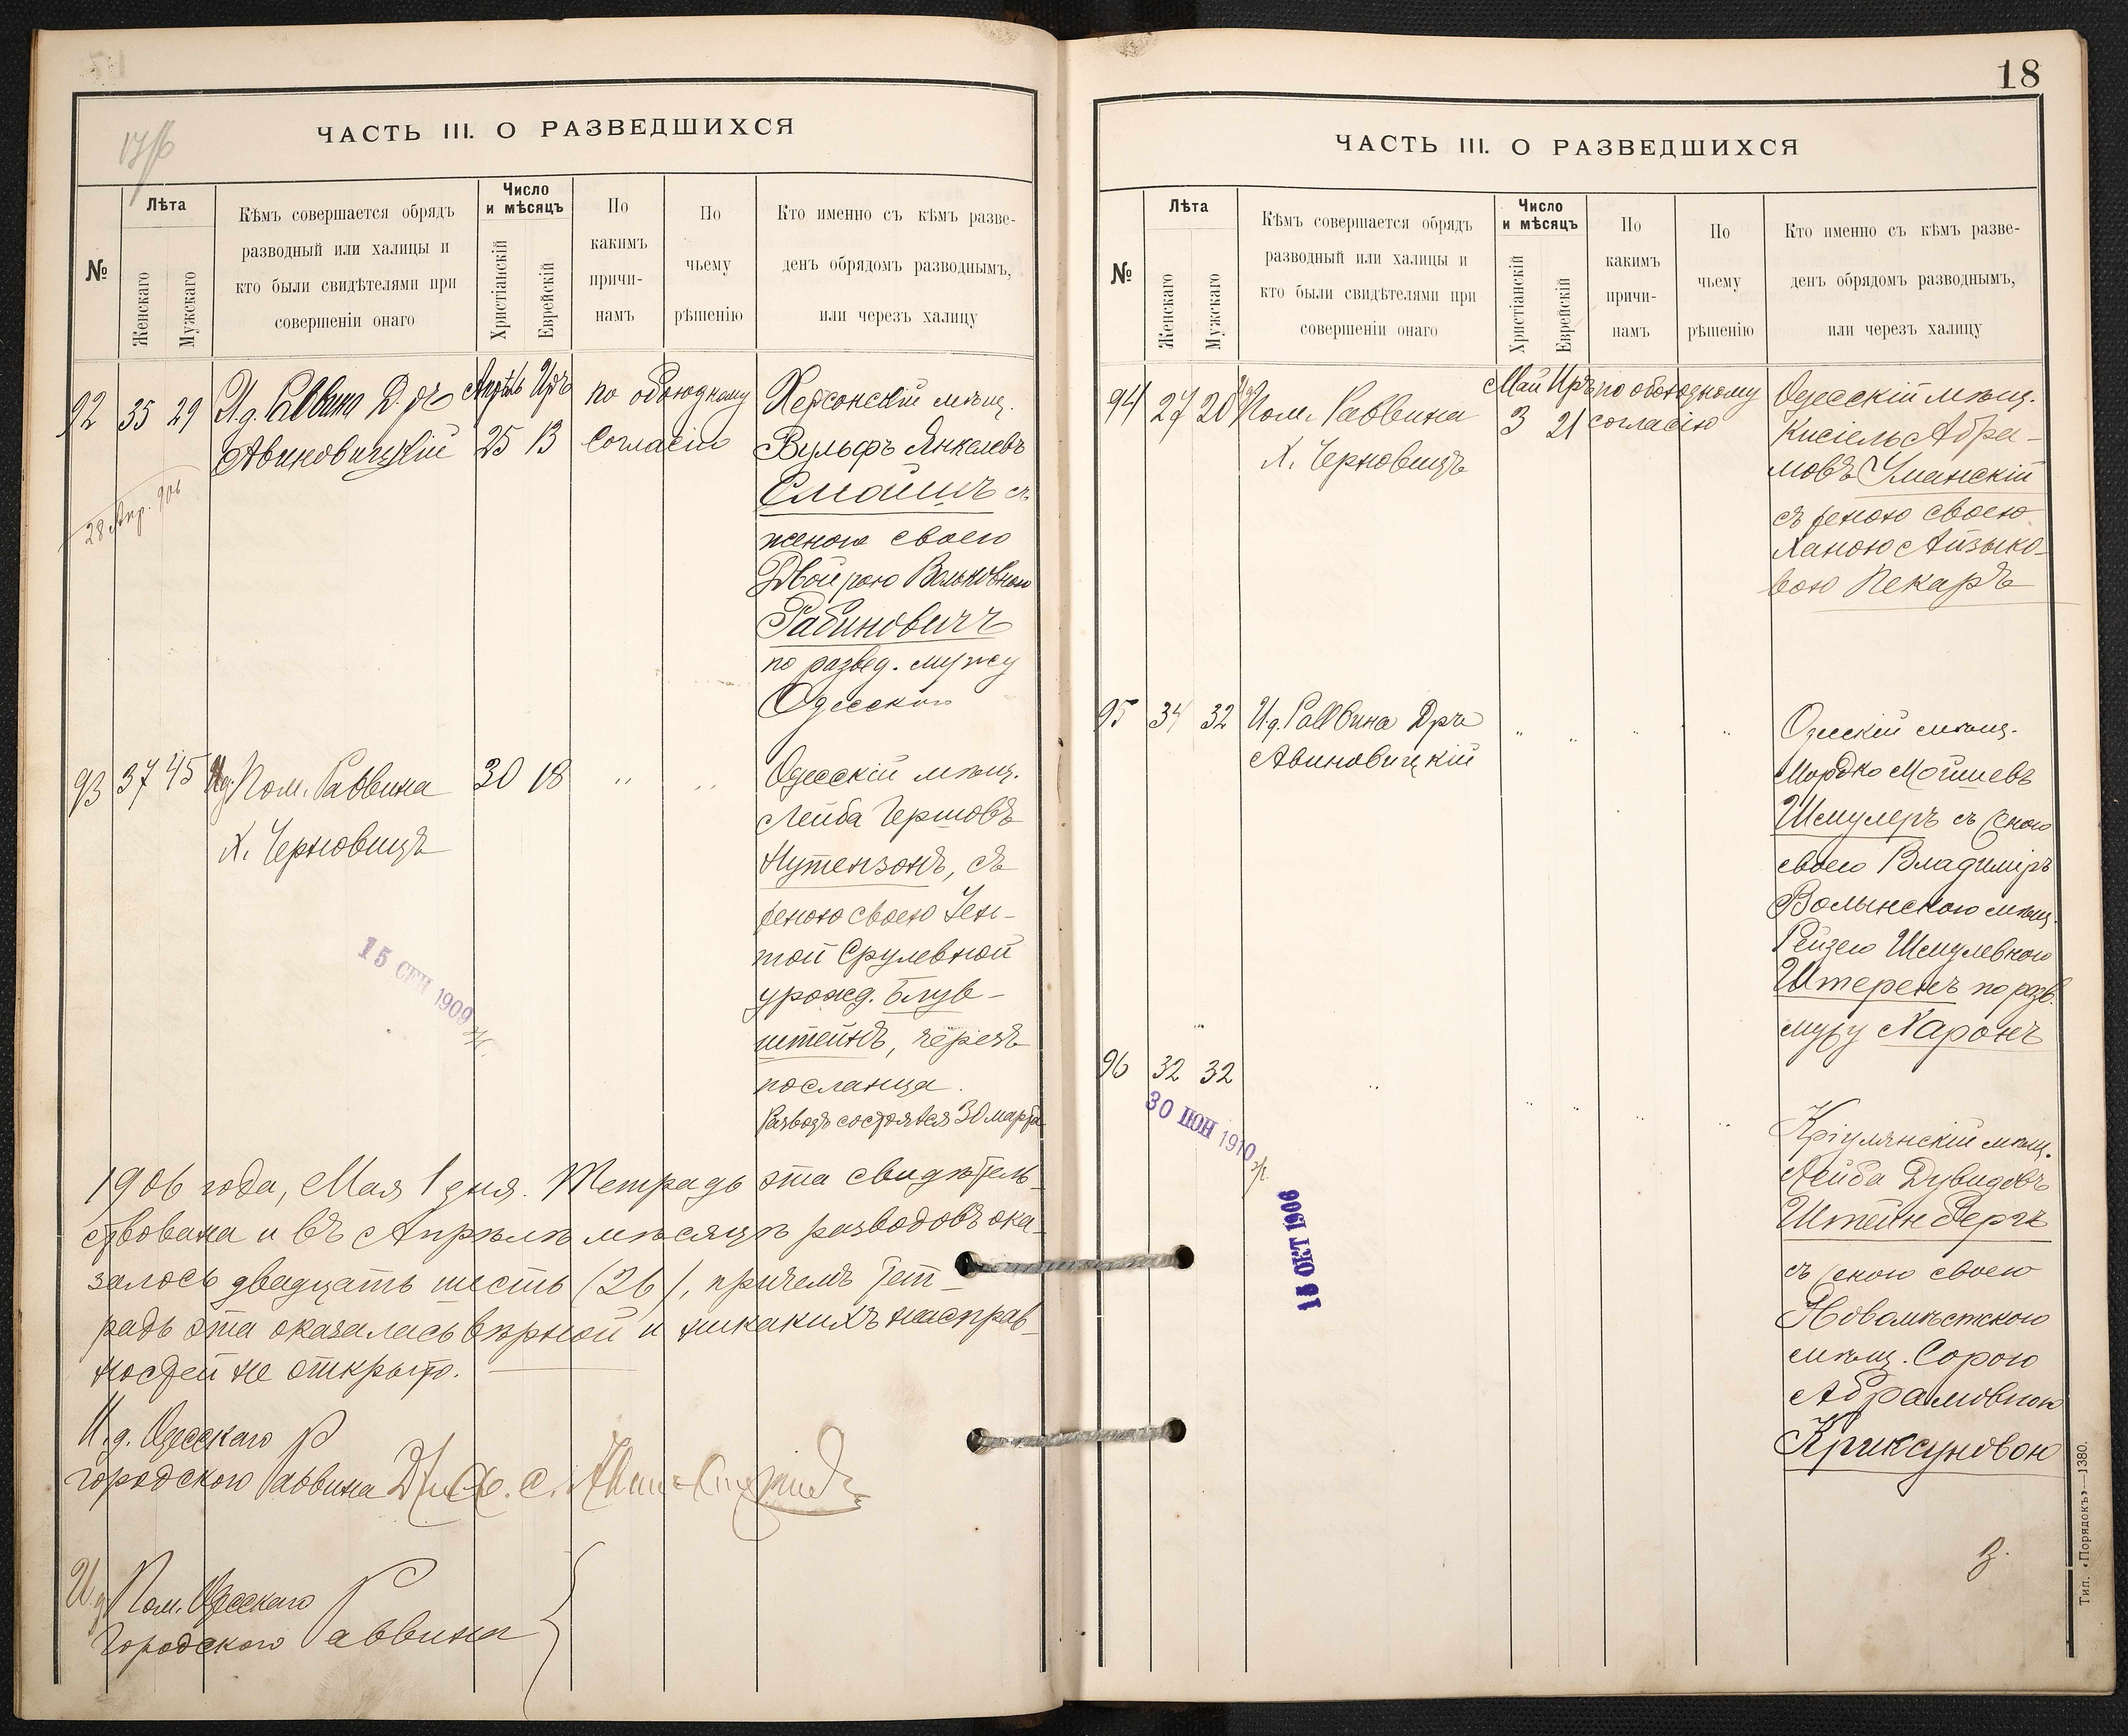 17/б
ЧАСТЬ III. О РАЗВЕДШИХСЯ
№
Лѣта
Женскаго
Мужскаго
Кѣмъ совершается обрядъ
разводный или халицы и
кто были свидѣтелями при
совершеніи онаго
Число
и мѣсяцъ
Христіанскій
Еврейскій
По
какимъ
причи-
намъ
По
чьему
рѣшенію
Кто именно съ кѣмъ разве-
денъ обрядомъ разводнымъ,
или черезъ халицу
92 35 29
И. д. Раввина Д-ръ
Авиновицкій
Апрѣль Иръ
25 13
по обоюдному
согласію
Херсонскій мѣщ.
Вульфъ Янкелевъ
Смоишъ съ
женою своею
Двойрою Вольковною
Рабиновичъ
по развед. мужу
Одесского
28 Апр. 906
93 37 45
И.д. Пом. Раввина
Х. Черновицъ
30 18
" "
Одесскій мѣщ.
Лейба Гершовъ
Нутензонъ, съ
женою своею Ген-
той Срулевной
урожд. Блув-
штейнъ, черезъ
посланца.
Разводъ состоялся 30 марта
15 СЕН 1909
1906 года, Мая 1 дня. Тетрадь эта свидѣтель-
ствована и въ Апрѣлѣ мѣсяцѣ разводовъ ока-
залось двадцать шесть (26), причемъ тет-
радь эта оказалась вѣрной и никакихъ неисправ-
ностей не открыто.
И. д. Одесскаго
городского Раввина
И.д. Пом. Одесскаго
Городского Раввина
18
ЧАСТЬ III. О РАЗВЕДШИХСЯ
№
Лѣта
Женскаго
Мужскаго
Кѣмъ совершается обрядъ
разводный или халицы и
кто были свидѣтелями при
совершеніи онаго
Число
и мѣсяцъ
Христіанскій
Еврейскій
По
какимъ
причи-
намъ
По
чьему
рѣшенію
Кто именно съ кѣмъ разве-
денъ обрядомъ разводнымъ,
или черезъ халицу
94 27 20
И.д. Пом. Раввина
Х. Черновицъ
Май Иръ
3 21
по обоюдному
согласію
Одесскій мѣщ.
Кисіель Абра-
мовъ Уманскій
съ женою своею
Ханою Айзыко-
вою Пекаръ
95 34 32
И.д. Раввина Дръ
Авиновицкій
" " " "
Одесскій мѣщ.
Мордко Мойшевъ
Шмулеръ съ женою
своею Владиміръ
Волынскою мѣщ.
Рейзею Шмулевною
Штеренъ по разв.
мужу Харонъ
96 32 32
" " " "
30 ІЮН 1910
15 ОКТ 1906
Кріулянскій мѣщ.
Лейба Дувидовъ
Штейнбергъ
съ женою своею
Новомѣстскою
мѣщ. Сорою
Абрамовною
Криксуновою
3.
Тип. «Порядокъ»—1380.